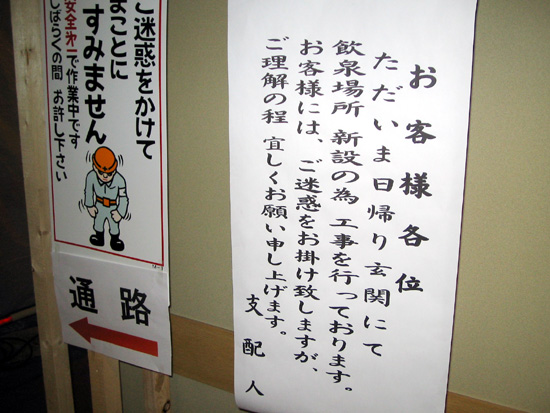 お客様各位
ただいま日帰り玄関にて
飲泉場所 新設の為 工事を行っております。
お客様には、ご迷惑をお掛け致しますが、
ご理解の程 宜しくお願い申し上げます。
支配人
ご迷惑をかけて
まことに
すみません
安全第一で作業中です
しばらくの間 お許し下さい
通路